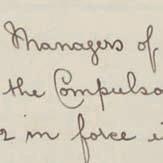 Managers of
the Compulso
2 in force i